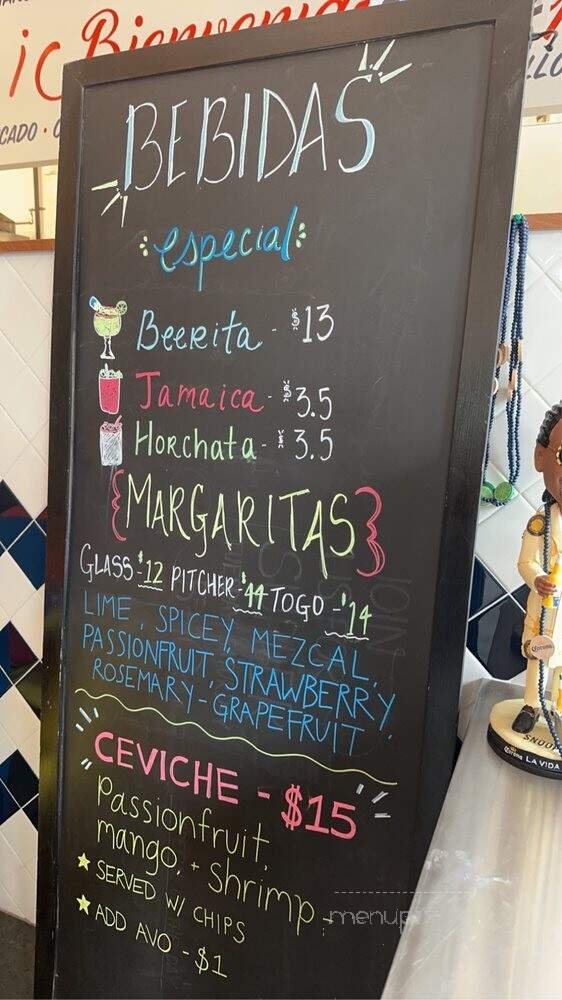 ¡C Bienvenid
CADO
BEBIDAS
especial
Beerita - $13
Jamaica - $3.5
Horchata - $3.5
{MARGARITAS}
GLASS - $12 PITCHER - $44 TOGO - $14
LIME, SPICEY, MEZCAL,
PASSIONFRUIT, STRAWBERRY,
ROSEMARY - GRAPEFRUIT
CEVICHE - $15
Passionfruit,
mango, + Shrimp
★ SERVED W/ CHIPS
★ ADD AVO - $1
menupix
SNOOP
Corona LA VIDA
Corona